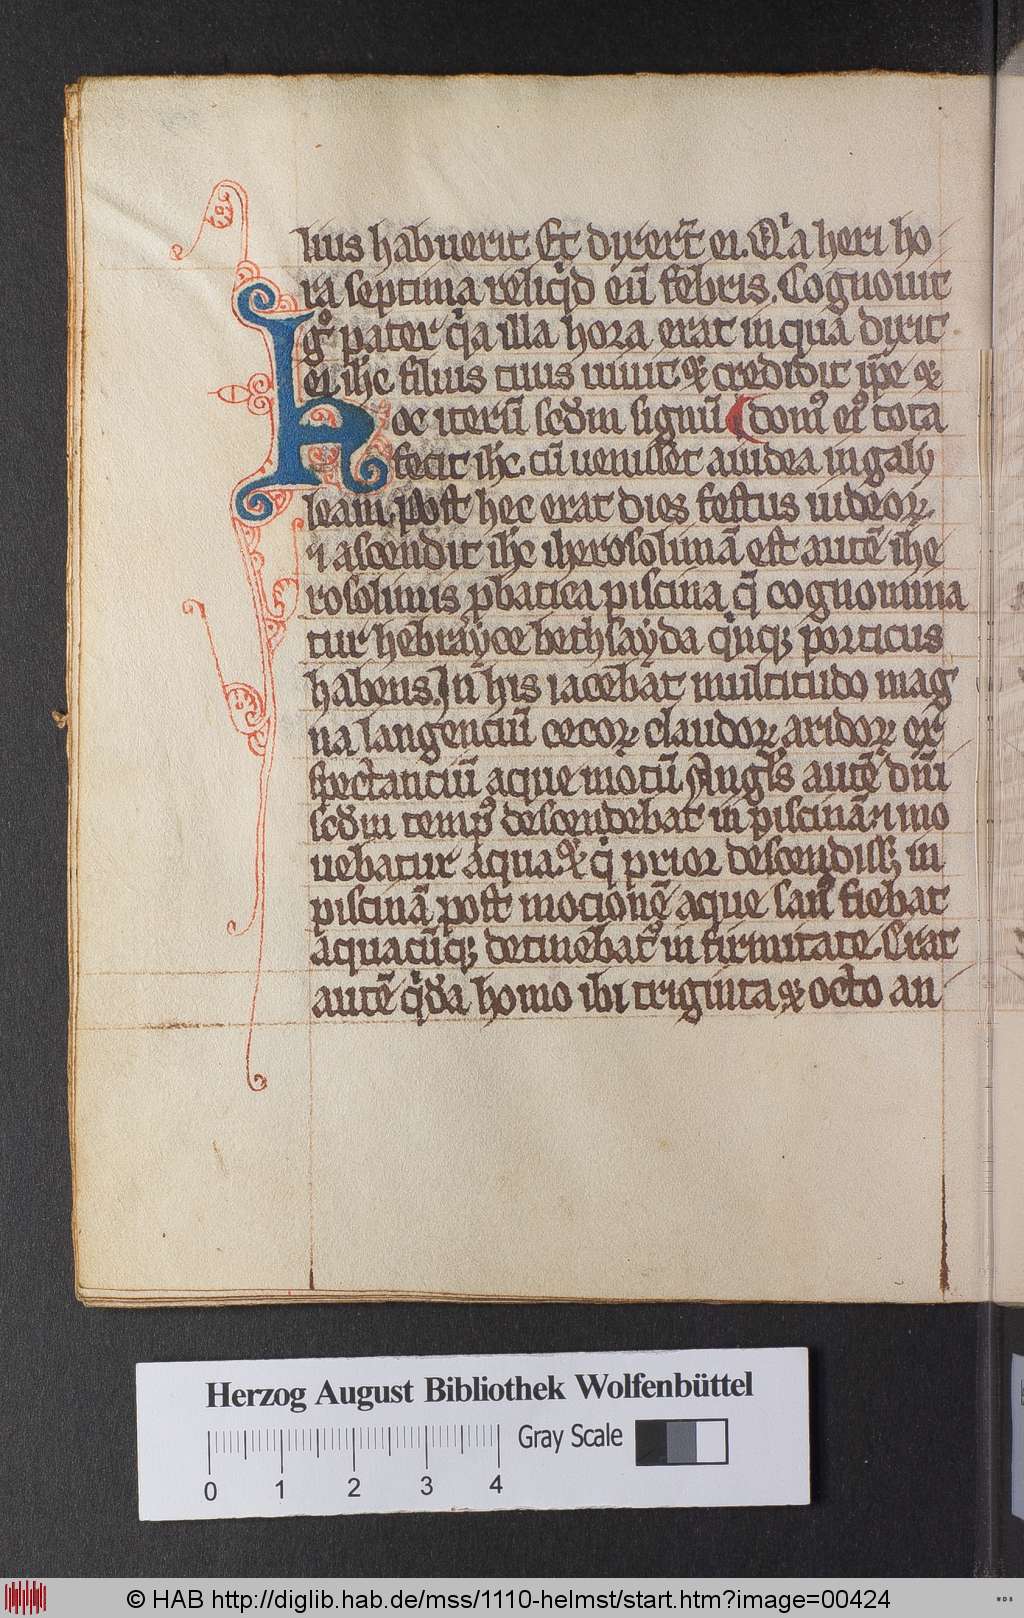 lius habuerit. Et dixerũt ei. Qͥa heri ho
ra septima reliqͥd eũ febris. Cognouit
gͦ pater qͥa illa hora erat in qua dixit
ei ihc filius tuus uiuit. ⁊ credidit ip̃e ⁊
Hoc iterũ sc̃dm signũ domꝰ eiꝰ tota
fecit ihc. cũ uenisset a iudea in galy
leam. post hec erat dies festus iudeoꝝ.
⁊ ascendit ihc iherosolimã est autẽ ihe
rosolimis ꝓbatica piscina q̃ cognomina
tur hebrayce bethsayda qͥnqꝫ porticus
habens. In his iacebat multitudo mag
na langenciũ cecoꝝ claudoꝝ aridoꝝ ex
spectanciũ aque motũ. Angls̃ autẽ dñi
sc̃dm tempꝰ descendebat in piscinã. ⁊ mo
uebatur aqua. ⁊ qͥ prior descendissꝫ in
piscinã post mocionẽ aque sanꝰ fiebat
aquacũqꝫ detinebatꝰ in firmitate. Erat
autẽ qͥdã homo ibi triginta ⁊ octo an
Herzog August Bibliothek Wolfenbüttel
Gray Scale
0 1 2 3 4
© HAB http://diglib.hab.de/mss/1110-helmst/start.htm?image=00424